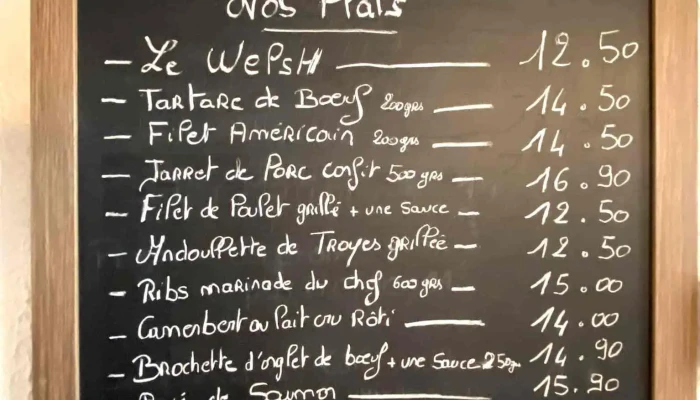 Nos Plats
- Le Welsh 12.50
- Tartare de Boeuf 200grs 14.50
- Filet Américain 200grs 14.50
- Jarret de Porc confit 500grs 16.90
- Filet de Poulet grillé + une Sauce 12.50
- Andouillette de Troyes grillée 12.50
- Ribs marinade du chef 600grs 15.00
- Camembert au lait cru Rôti 14.00
- Brochette d'onglet de bœuf + une Sauce 250grs 14.90
de Saumon 15.90